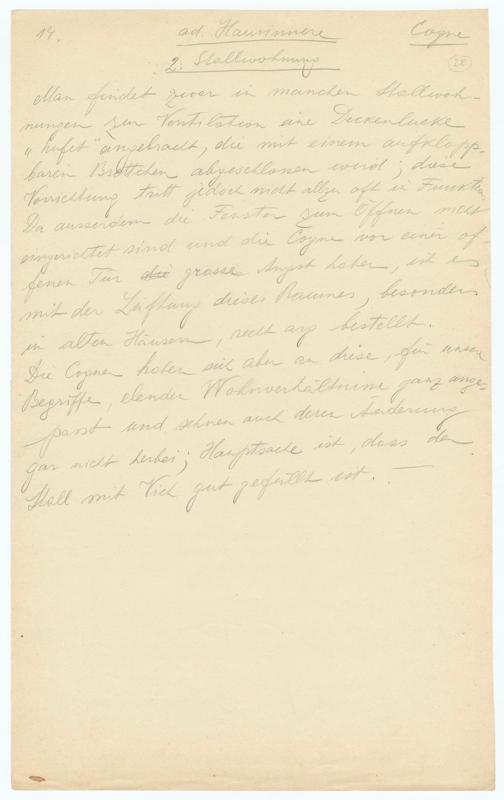 14. ad. Hausinnere Cogne
2. Stallwohnung
Man findet zwar in manchen Stallwoh-
nungen zur Ventilation eine Deckenlucke
angebracht, die mit einem aufklapp-
baren Brettchen abgeschlossen wird; diese
Vorrichtung tritt jedoch nicht allzu oft in Funktion.
Da ausserdem die Fenster zum Öffnen nicht
eingerichtet sind und die Cogne vor einer of-
fenen Tür die grosse Angst haben, ist es
mit der Lüftung dieses Raumes, besonders
in alten Häusern, recht arg bestellt.
Die Cogner haben sich aber an diese, für unsere
Begriffe, elenden Wohnverhältnisse ganz ange-
passt und sehnen auch deren Änderung
gar nicht herbei; Hauptsache ist, dass der
Stall mit Vieh gut gefüllt ist. —